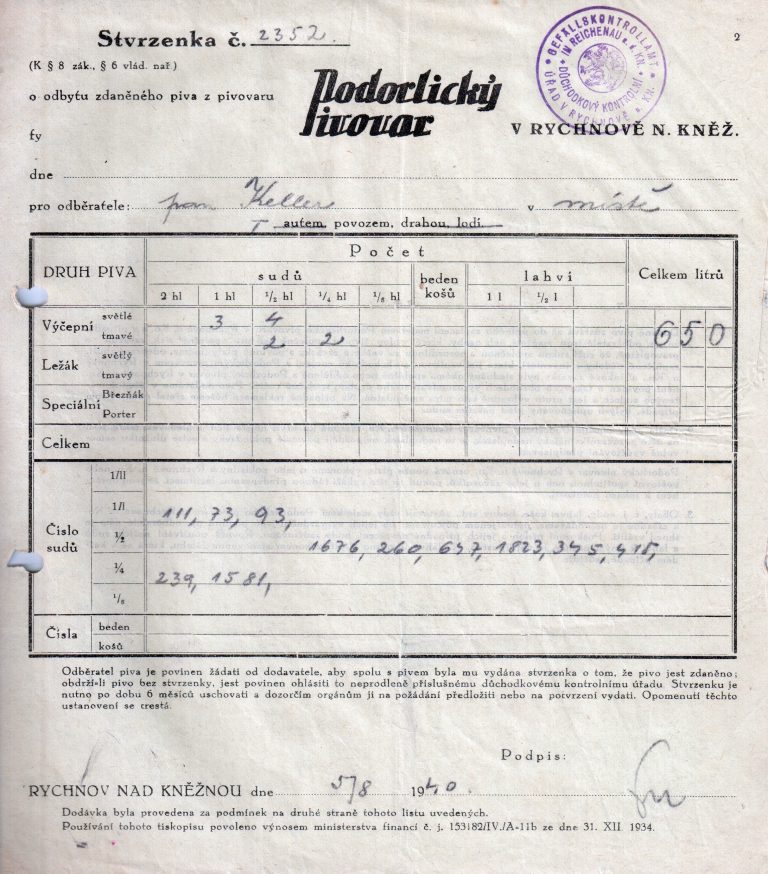 Stvrzenka č. 2352.
2
(K § 8 zák., § 6 vlád. nař.)
GEFÄLLSKONTROLLAMT IN REICHENAU a. d. KN.
DŮCHODKOVÝ KONTROLNÍ ÚŘAD V RYCHNOVĚ n. KN.
o odbytu zdaněného piva z pivovaru
Podorlický Pivovar
V RYCHNOVĚ N. KNĚŽ.
fy
dne
pro odběratele: pan Keller v místě
autem, povozem, drahou, lodí
DRUH PIVA
Počet
sudů
beden košů
lahví
Celkem litrů
2 hl 1 hl ½ hl ¼ hl ⅛ hl 1 l ½ l
Výčepní světlé 3 4
tmavé 2 2
650
Ležák světlý
tmavý
Speciální Březňák
Porter
Celkem
Číslo sudů
1/II
1/I 111, 73, 93,
½ 1676, 260, 647, 1823, 345, 418,
¼ 239, 1581,
⅛
Čísla beden
košů
Odběratel piva je povinen žádati od dodavatele, aby spolu s pivem byla mu vydána stvrzenka o tom, že pivo jest zdaněno;
obdrží-li pivo bez stvrzenky, jest povinen ohlásiti to neprodleně příslušnému důchodkovému kontrolnímu úřadu. Stvrzenku je
nutno po dobu 6 měsíců uschovati a dozorčím orgánům ji na požádání předložiti nebo na potvrzení vydati. Opomenutí těchto
ustanovení se trestá.
Podpis:
RYCHNOV NAD KNĚŽNOU dne 5/8 1940.
Dodávka byla provedena za podmínek na druhé straně tohoto listu uvedených.
Používání tohoto tiskopisu povoleno výnosem ministerstva financí č. j. 153182/IV./A-11b ze dne 31. XII 1934.